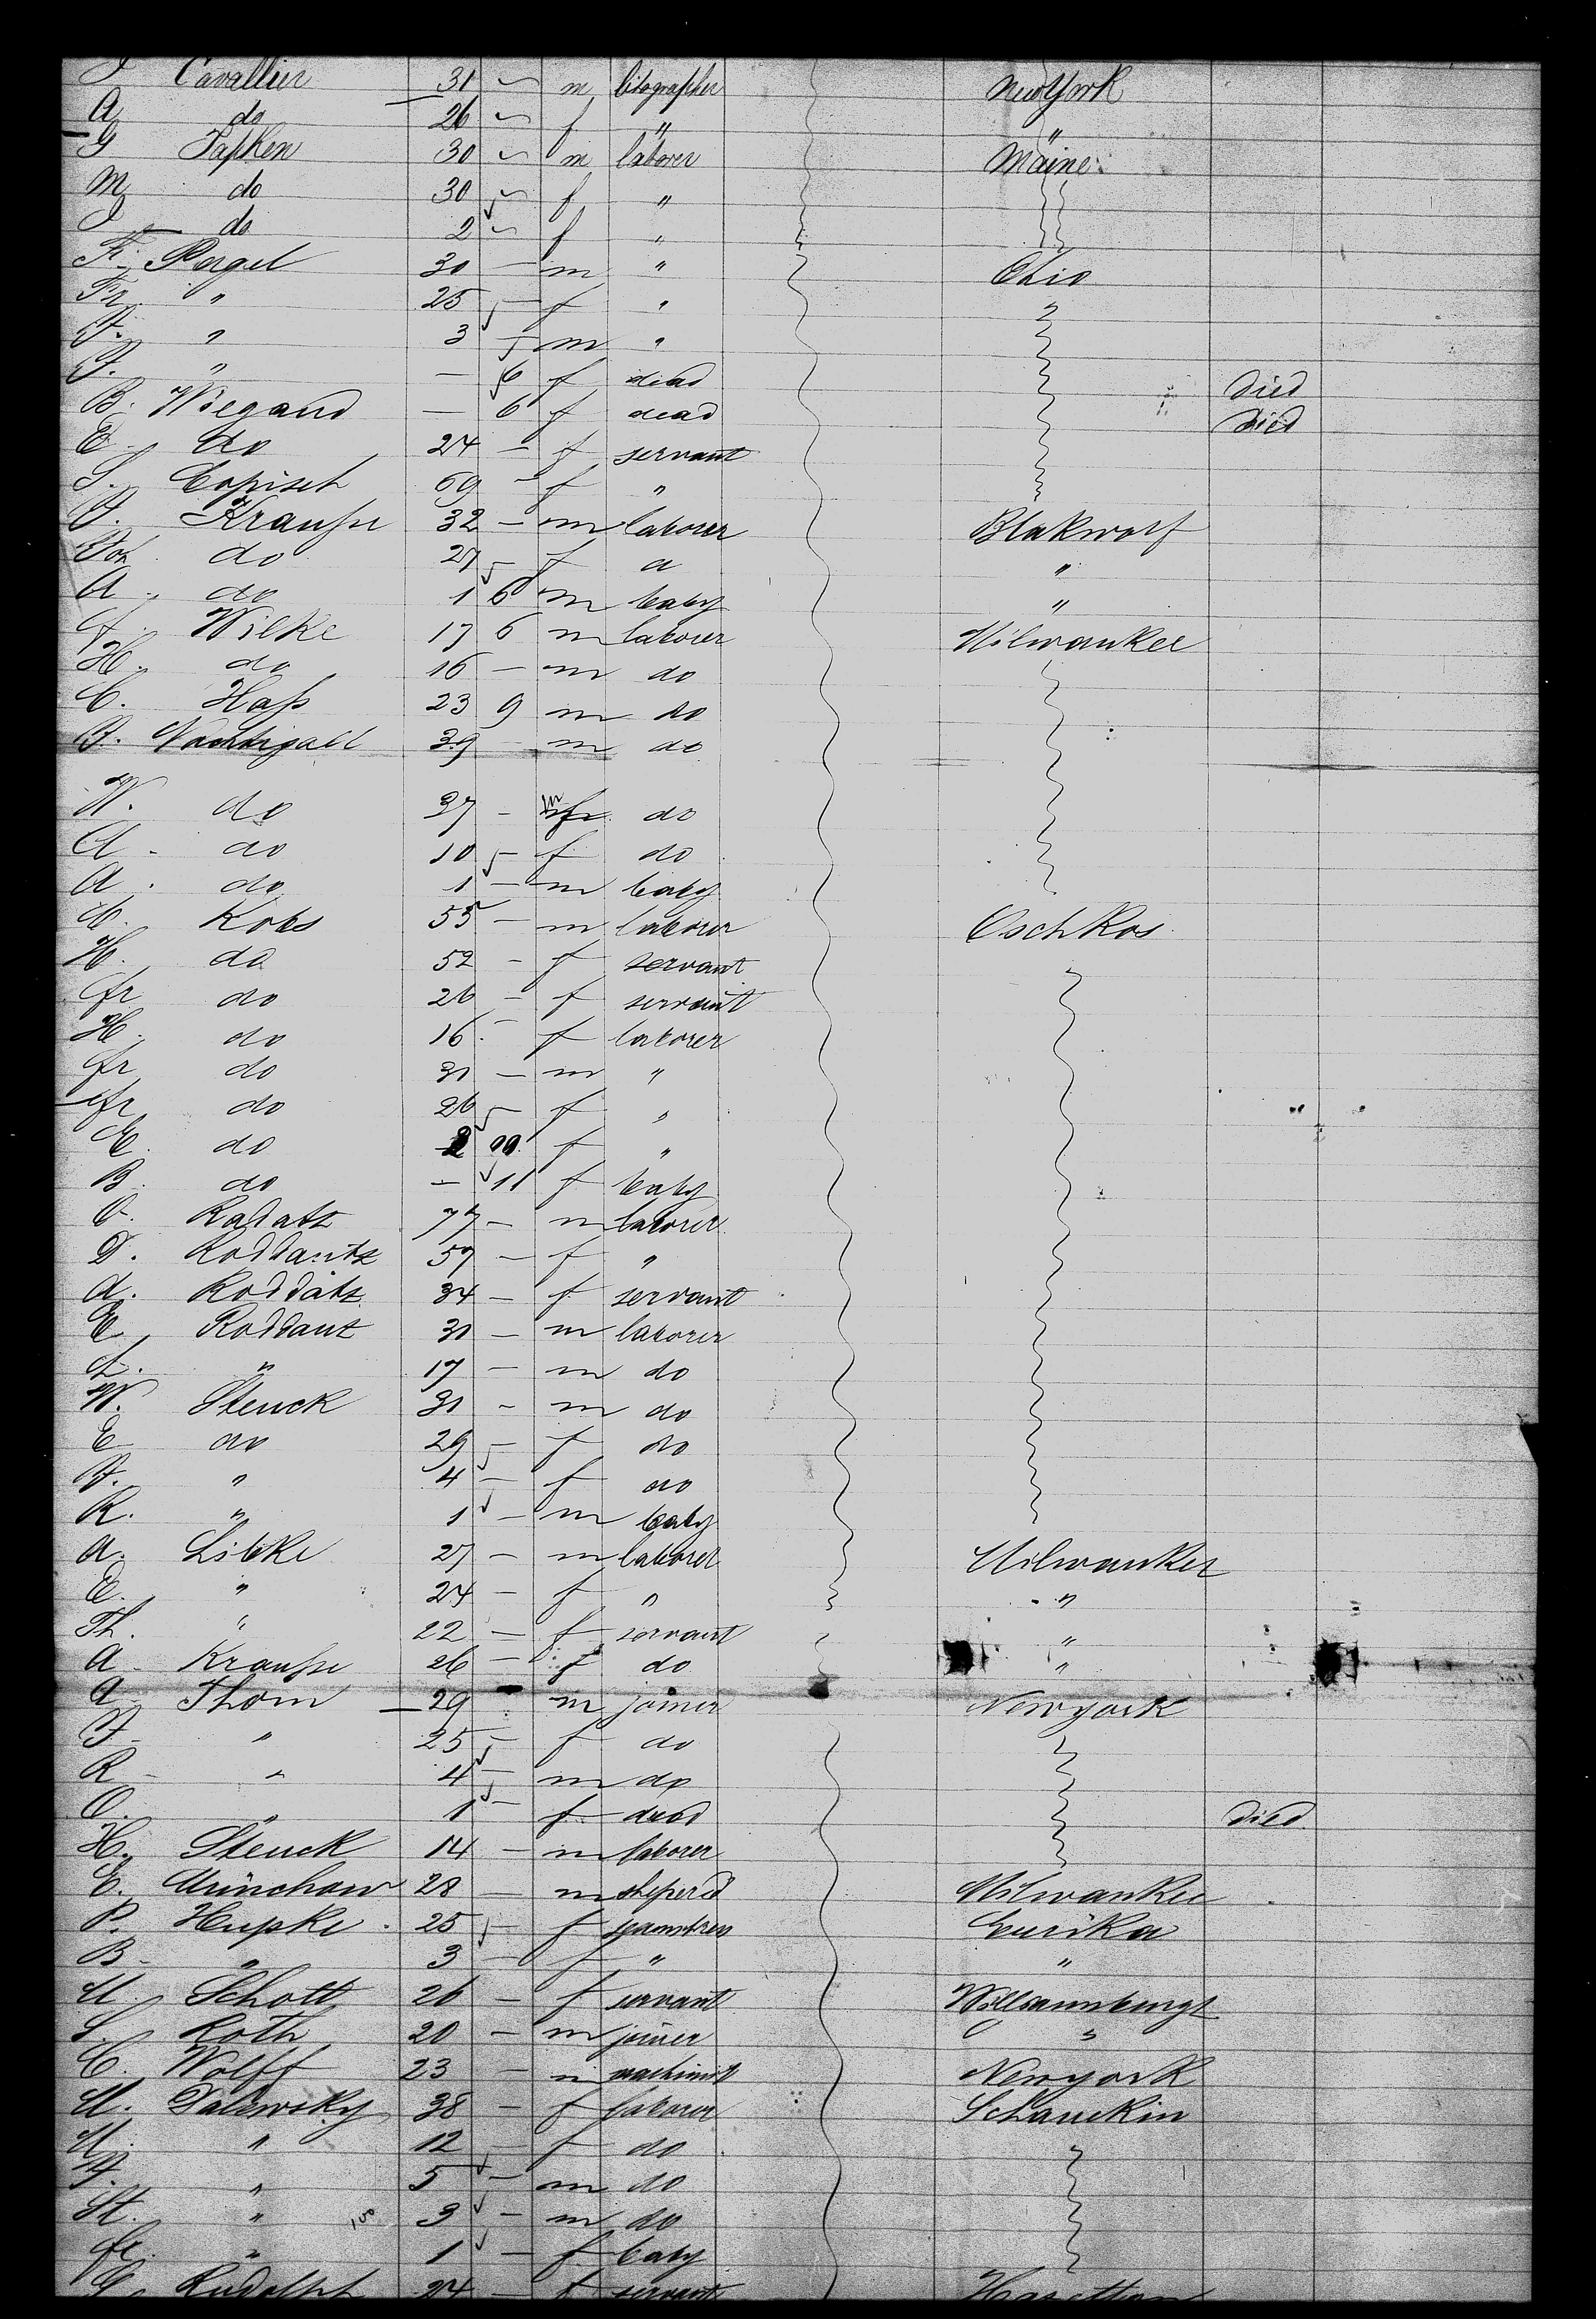 J Cavallier 31 m litographer NewYork
A do 26 f " "
G Tapken 30 m laborer Maine
M do 30 f "
J do 2 f "
F. Pergel 30 — m " Ohio
Fr. " 25 — f "
F. " 3 — m "
F. " — 6 f dead Died
B. Wiegand — 6 f dead Died
E. do 24 — f servant
S. Copisch 69 — f "
F. Krauße 32 — m laborer Blakworf
Joh do 27 — f a "
A. do 1 6 m baby "
F. Wilke 17 6 m laborer Milwaukee
H. do 16 — m do
C. Haß 23 9 m do
F. Nachtigall 39 — m do
W. do 37 — m do
A. do 10 — f do
A. do 1 — m baby
C. Kobs 55 — m laborer Oschkos
H. do 52 — f servant
fr do 26 — f servant
H. do 16 — f laborer
fr do 31 — m "
fr do 26 — f "
E. do 2 f "
B. do — 11 f baby
C. Radatz 77 — m laborer
D. Roddantz 57 — f "
A. Roddatz 34 — f servant
E Roddanz 31 — m laborer
L. " 17 — m do
W. Stenck 31 — m do
E do 29 — f do
F. " 4 — f do
R. " 1 — m baby
A. Libke 27 — m laborer Milwaukee
E. " 24 — f " "
Th. " 22 — f servant "
A. Krauße 26 — f do "
A. Thom 29 m joiner Newyork
F. " 25 — f do
R. " 4 — m do
O. " 1 — f dead Died
H. Stenck 14 — m laborer
E. Münchow 28 — m sheperd Milwaukee
P. Hupke 25 — f seamstres Eurika
B. " 3 — f " "
M Schott 26 — f servant Williamsburgh
S. Roth 20 — m joiner "
C. Wolff 23 — m machinist Newyork
M. Dalewsky 38 — f laborer Schauckin
M. " 12 f do
F. " 5 — m do
St. " 3 — m do
fr. " 1 — f baby
G. Rudolph 24 — f servant